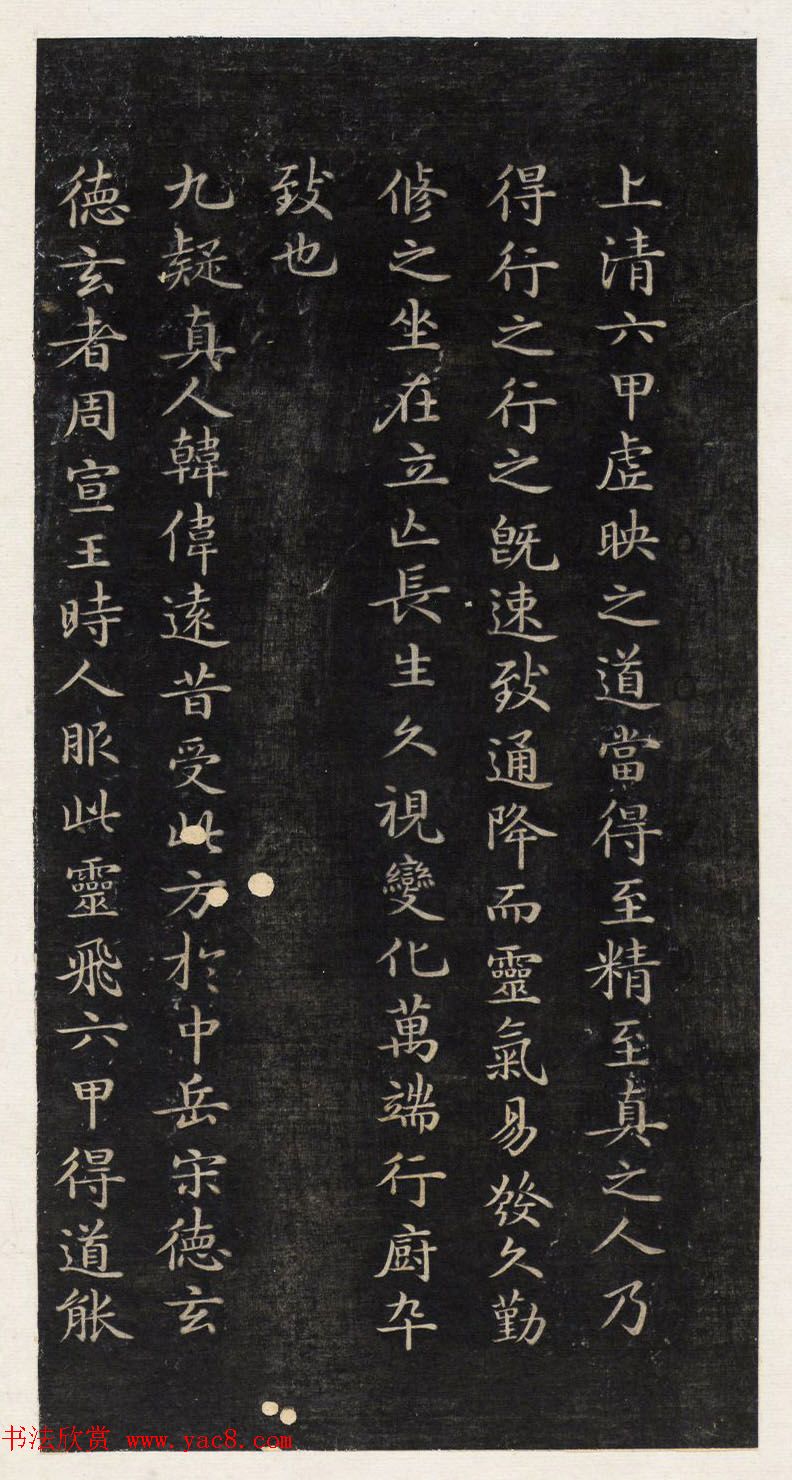 上清六甲虗映之道當得至精至真之人乃
得行之行之既速致通降而靈氣易發久勤
修之坐在立亾長生久視變化萬端行廚卒
致也
九疑真人韓偉遠昔受此方於中岳宋德玄
德玄者周宣王時人服此靈飛六甲得道能
书法欣赏 www.yac8.com